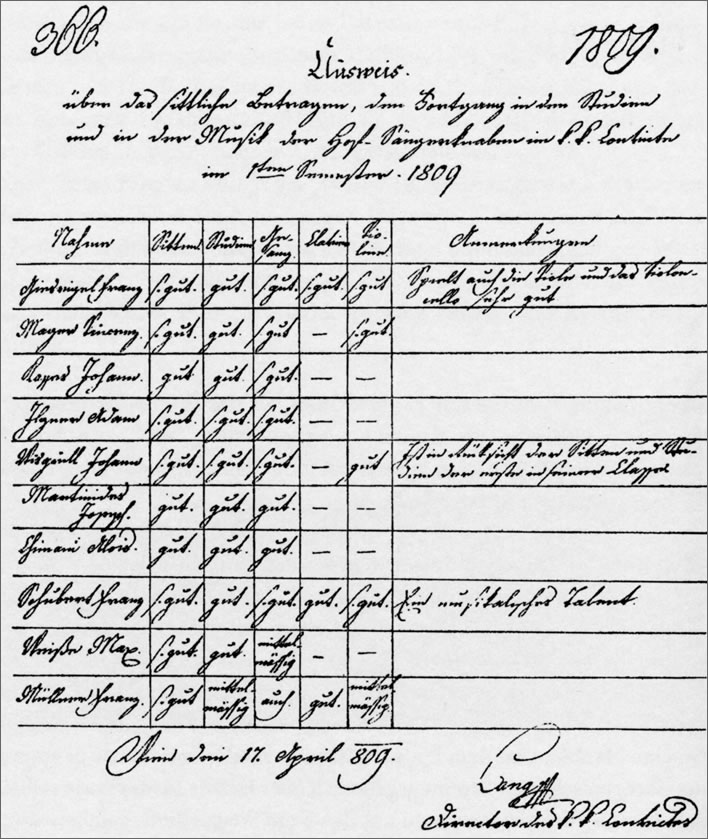 366.
1809.
Ausweis.
über das sittliche Betragen, den Fortgang in den Studien
und in der Musik der Hof-Sängerknaben im k. k. Convicte
im 1ten Semester 1809
Nahmen Sitten Studien Ge- Clavier Vio-
sang line Anmerkungen
Franz s. gut. gut. s. gut. s. gut s. gut Spielt auch die Viola und das Violon-
cello sehr gut
Mayer s. gut. gut. s. gut — s. gut.
Johann. gut gut. s. gut. — —
Adam s. gut. s. gut. s. gut. — —
Johann s. gut. s. gut. s. gut. — gut Ist in Rüksicht der Sitten und Stu-
dien der erste in seiner Classe
Joseph. gut. gut. gut. — —
Alois. gut. gut. gut. — —
Schubert Franz s. gut. gut. s. gut. gut. s. gut. Ein musikalisches Talent.
Weiße Max. s. gut. gut. mittel-
mässig — —
Müllner Franz. s. gut mittel-
mässig auch. gut. mittel-
mässig.
Wien den 17. April 809.
Lang
Director des k. k. Convictes